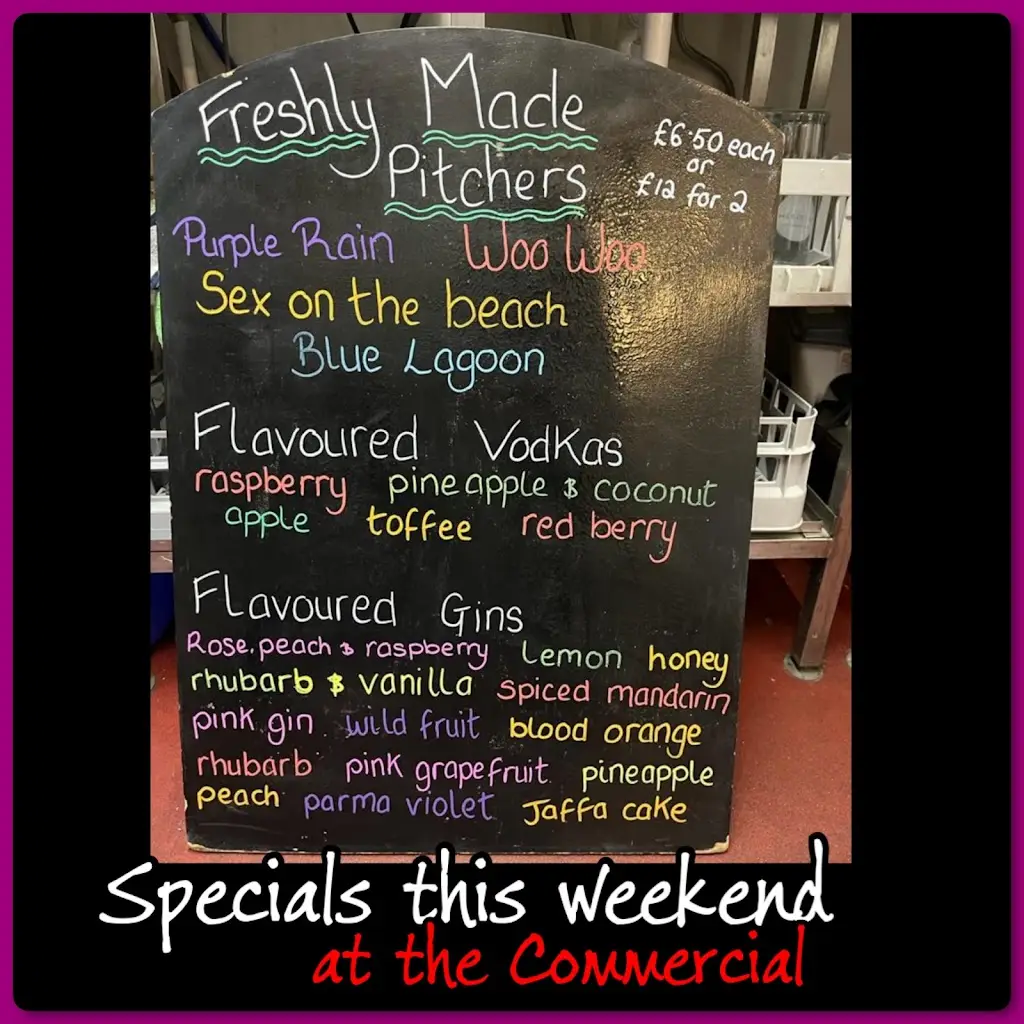 Freshly Made
Pitchers
£6.50 each
or
£12 for 2
Purple Rain Woo Woo
Sex on the beach
Blue Lagoon
Flavoured Vodkas
raspberry pineapple & coconut
apple toffee red berry
Flavoured Gins
Rose, peach & raspberry Lemon honey
rhubarb & vanilla spiced mandarin
pink gin wild fruit blood orange
rhubarb pink grapefruit pineapple
peach parma violet Jaffa cake
Specials this weekend
at the Commercial